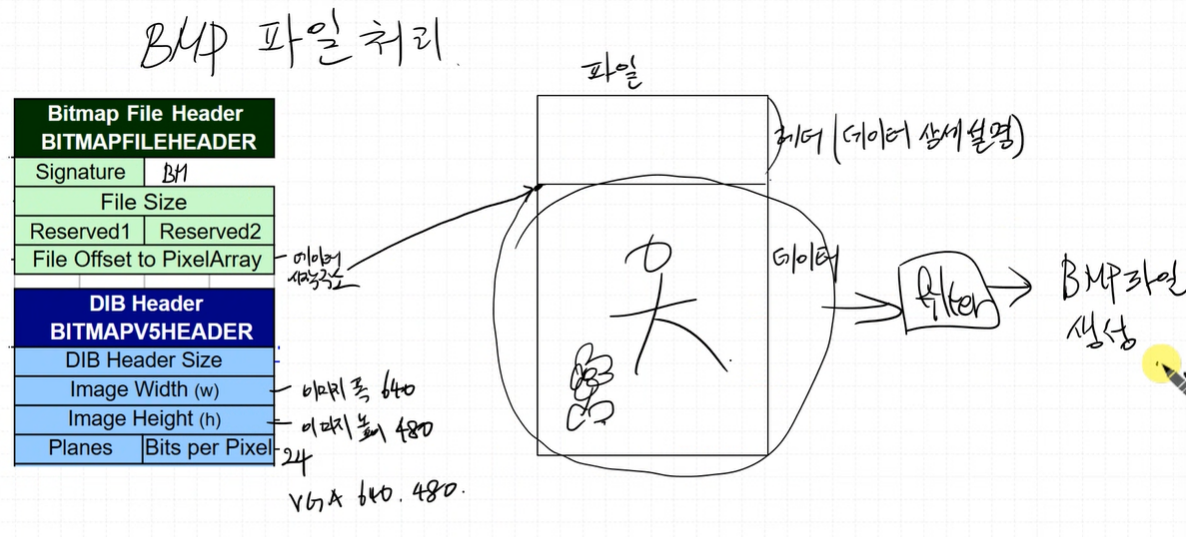 BMP 파일 처리
Bitmap File Header
BITMAPFILEHEADER
Signature BM
File Size
Reserved1 Reserved2
File Offset to PixelArray
데이터
시작주소
DIB Header
BITMAPV5HEADER
DIB Header Size
Image Width (w)
이미지 폭 640
Image Height (h)
이미지 높이 480
Planes Bits per Pixel
24
VGA 640. 480.
파일
헤더 (데이터 상세설명)
데이터
filter
BMP파일
생성